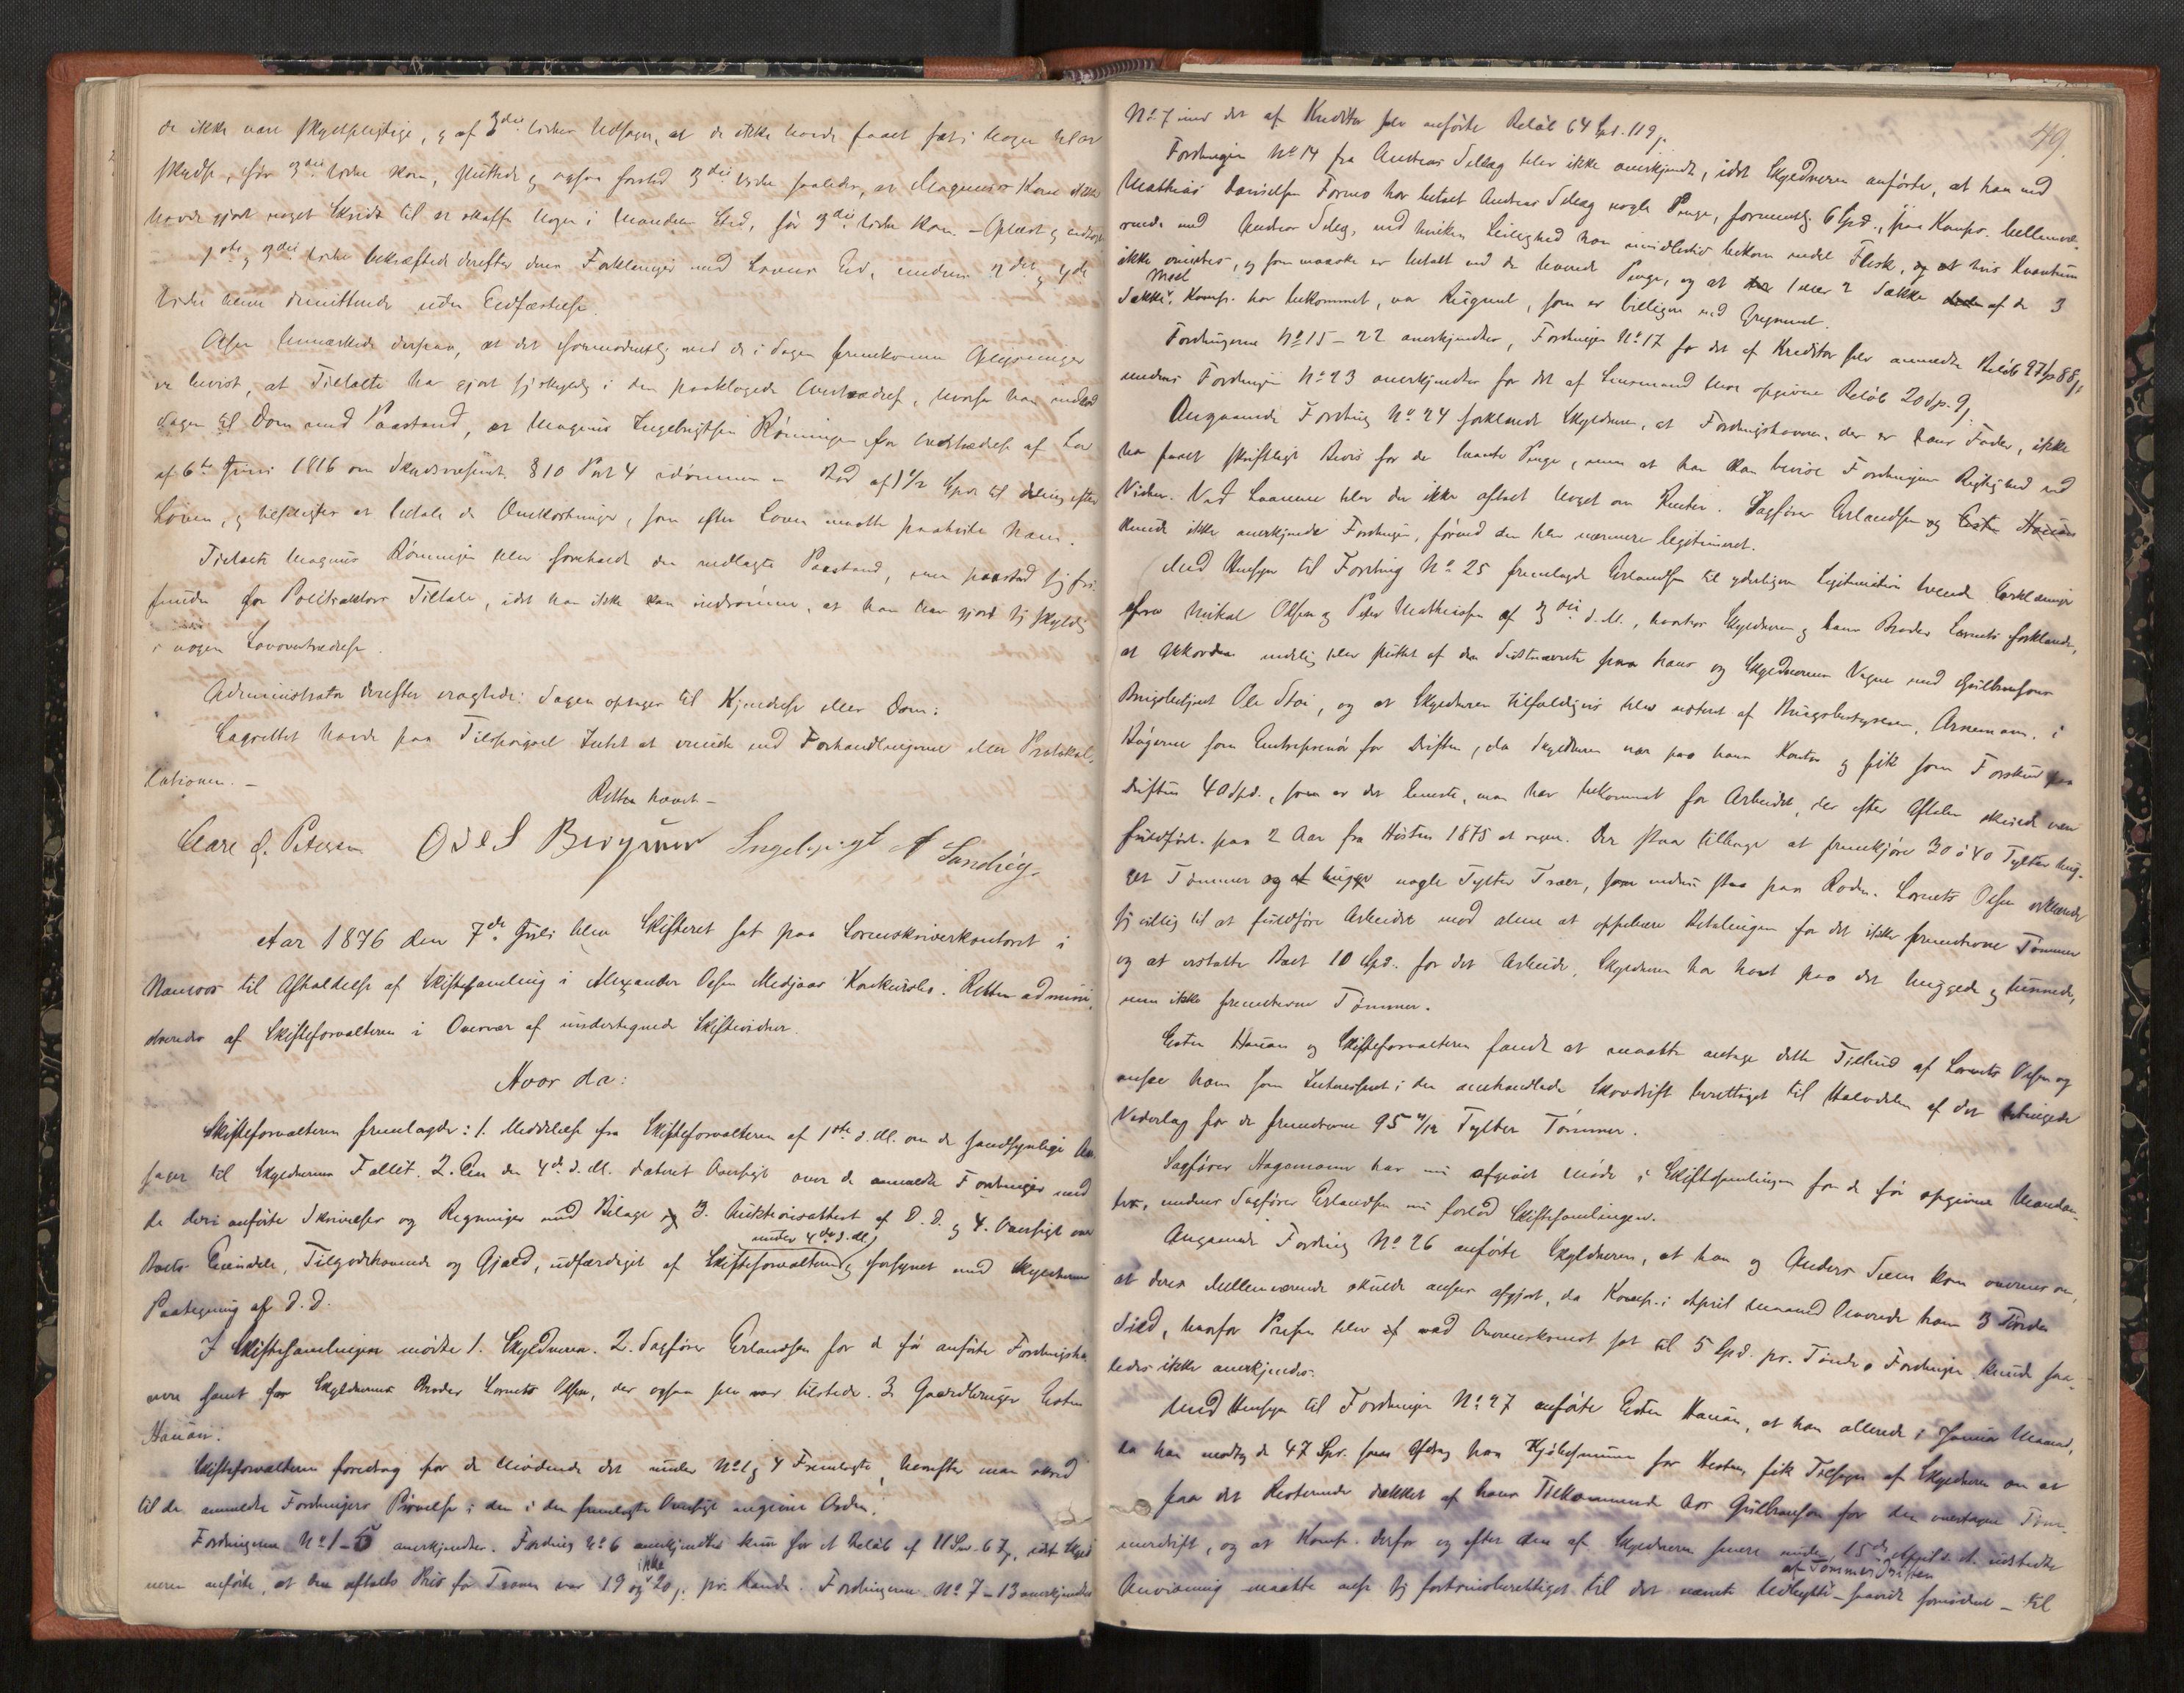 de ikke vare skydspligtige, og af 3die Vidnes Udsagn, at de ikke havde faaet fat i nogen til at
skydse, før 3die Vidne kom, sluttede og ogsaa forstod 3die Vidne saaledes, at Magnus Kone ikke
havde gjort noget Skridt til at skaffe nogen i Mandens Sted, før 3die Vidne kom. – Oplæst og vedtaget
1ste og 3die Vidne bekræftede derefter deres Forklaringer med Lovens Ed, medens 2det og 4de
Vidne bleve dimitterede uden Eedfæstelse.
Aktor bemærkede derpaa, at det formodentlig ved de i Sagen fremkomne Oplysninger
er bevist, at Tiltalte har gjort sig skyldig i den paaklagede Overtrædelse, hvorfor han indlod
Sagen til Dom med Paastand, at Magnus Ingebrigtsen Rønningen for Overtrædelse af Lov
af 6te Juni 1816 om Skydsvæsenet § 10 Post 4 idømmes en Bod af 1 1/2 Spd til deling efter
Loven, og tilpligtes at betale de Omkostninger, som efter Loven maatte paahvile ham.
Tiltalte Magnus Rønningen blev foreholdt den nedlagte Paastand, men paastod sig fri-
funden for Politiaktors Tiltale, idet han ikke kan indrømme, at han har gjort sig skyldig
i nogen Lovovertrædelse.
Administrator derefter eragtede: Sagen optages til Kjendelse eller Dom.
Lagrettet havde paa Tilspørgsel Intet at erindre ved Forhandlingerne eller Protokol-
lationen. –
Retten hævet –
Carl J. Petersen Odel S Bergsmo Ingebrigt A Sandøy.
Aar 1876 den 7de Juli blev Skifteret sat paa Sorenskriverkontoret i
Namsos til Afholdelse af Skiftesamling i Alexander Olsen Medjaas Konkursbo. Retten admini-
streredes af Skifteforvalteren i Overvær af undertegnede Skiftevidner.
Hvor da:
Skifteforvalteren fremlagde: 1. Meddelelse fra Skifteforvalteren af 1ste d. M. om de sandsynlige Aar-
sager til Skyldnerens Fallit. 2. En den 4de d. M. dateret Oversigt over de anmeldte Fordringer med
de deri anførte Skrivelser og Regninger med Bilage og 3. Auktionsattest af D. D. og 4. Oversigt over
Boets Eiendele, Tilgodehavende og Gjæld, udfærdiget af Skifteforvalteren under 4de d. M. og forsynet med Skyldnerens
Paategning af D. D.
I Skiftesamlingen mødte 1. Skyldneren. 2. Sagfører Erlandsen for de før anførte Fordringsha-
vere samt for Skyldnerens Broder Lornts Olsen, der ogsaa selv var tilstede. 3. Gaardbruger Esten
Hauan.
Skifteforvalteren foredrog for de Mødende det under No 1 og 4 Fremlagte, hvorefter man skred
til de anmeldte Fordringers Prøvelse i den i den fremlagte Oversigt angivne Orden.
Fordringerne No 1–5 anerkjendtes. Fordring No 6 anerkjendtes kun for et Beløb af 11 Spd. 67 s., idet Skyld
neren anførte, at den aftalte Pris for Tranen var 19 og ikke 20 s. pr. Kande. Fordringerne No 7–13 anerkjendtes
49.
No 7 med det af Kreditor selv anførte Beløb 64 Spd. 119 s.
Fordringen No 14 fra Andreas Selleg blev ikke anerkjendt, idet Skyldneren anførte, at han ved
Mathias Danielsen Formo har betalt Andreas Selleg nogle Penge, formentlig 6 Spd., paa Komps. Mellemvæ-
rende med Andreas Selleg, ved hvilken Leilighed han imidlertid bekom endel Flesk, og at hvis Kvantum
ikke erindres, og som maaske er betalt ved de leverede Penge, og at 1 eller 2 Sække af de 3
Sække Meel, Komp. har bekommet, var Rugmel, som er billigere end Grynmel.
Fordringerne No 15–22 anerkjendtes, Fordringen No 17 for det af Kreditor selv anmeldte Beløb 27 Sp. 88 s,
medens Fordringen No 23 anerkjendtes for det af Lensmand Moe opgivne Beløb 20 Sp. 9 s.
Angaaende Fordring No 24 forklarede Skyldneren, at Fordringshaveren, der er hans Fader, ikke
har faaet skriftligt Bevis for de laante Penge, men at han kan bevise Fordringens Rigtighed ved
Vidner. Ved Laanene blev der ikke aftalt Noget om Renter. Sagfører Erlandsen og Esten Hauan
kunde ikke anerkjende Fordringen, førend den blev nærmere legitimeret.
Med Hensyn til Fordring No 25 fremlagde Erlandsen til yderligere Legitimation tvende Erklæringer
fra Mikal Olsen og Peter Mathiasen af 3die d. M., hvorhos Skyldneren og hans Broder Lornts forklarede,
at Akkorden endelig blev sluttet af den Sidstnævnte paa hans og Skyldnerens Vegne med Gulbransons
Brugsbetjent Ole Stai, og at Skyldneren tilfældigvis blev noteret af Brugsbestyreren, Arnemann, i
Bøgerne som Entreprenør for Driften, da Skyldneren var paa hans Kontor og fik som Forskud paa
Driften 40 Spd., som er det Eneste, man har bekommet for Arbeidet, der efter Aftalen skulde være
fuldført paa 2 Aar fra Høsten 1875 at regne. Der staar tilbage at fremkjøre 30 à 40 Tylter hug-
get Tømmer og at hugge nogle Tylter Træer, som endnu staa paa Roden. Lornts Olsen erklærede
sig villig til at fuldføre Arbeidet mod alene at oppebære Betalingen for det ikke fremdrevne Tømmer
og at erstatte Boet 10 Spd. for det Arbeide, Skyldneren har havt paa det huggede og lunnede,
men ikke fremdrevne Tømmer.
Esten Hauan og Skifteforvalteren fandt at maatte antage dette Tilbud af Lornts Olsen og
ansee ham som Interessent i den omhandlede Skovdrift berettiget til Halvdelen af det betingede
Vederlag for de fremdrevne 95 4/12 Tylter Tømmer.
Sagfører Hagemann har nu afgivet Møde i Skiftesamlingen for de før opgivne Mandan-
ter, medens Sagfører Erlandsen nu forlod Skiftesamlingen.
Angaaende Fordring No 26 anførte Skyldneren, at han og Anders Sæm kom overens om,
at deres Mellemværende skulde ansees afgjort, da Komp. i April Maaned leverede ham 3 Tønder
Sild, hvorfor Prisen blev ved Overenskomst sat til 5 Spd. pr. Tønde. Fordringen kunde saa-
ledes ikke anerkjendes.
Med Hensyn til Fordringen No 27 anførte Esten Hauan, at han allerede i Januar Maaned,
da han modtog de 47 Spd. som Afdrag paa Kjøbesummen for Hesten, fik Tilsagn af Skyldneren om at
faa det Resterende dækket af hans Tilkommende hos Gulbranson for den overtagne Tøm-
merdrift, og at Komp. derfor og efter den af Skyldneren senere under 15de April d. A. udstedte
Anvisning maatte anse sig fortrinsberettiget til det nævnte Udbytte af Tømmerdriften – saavidt fornødent – til